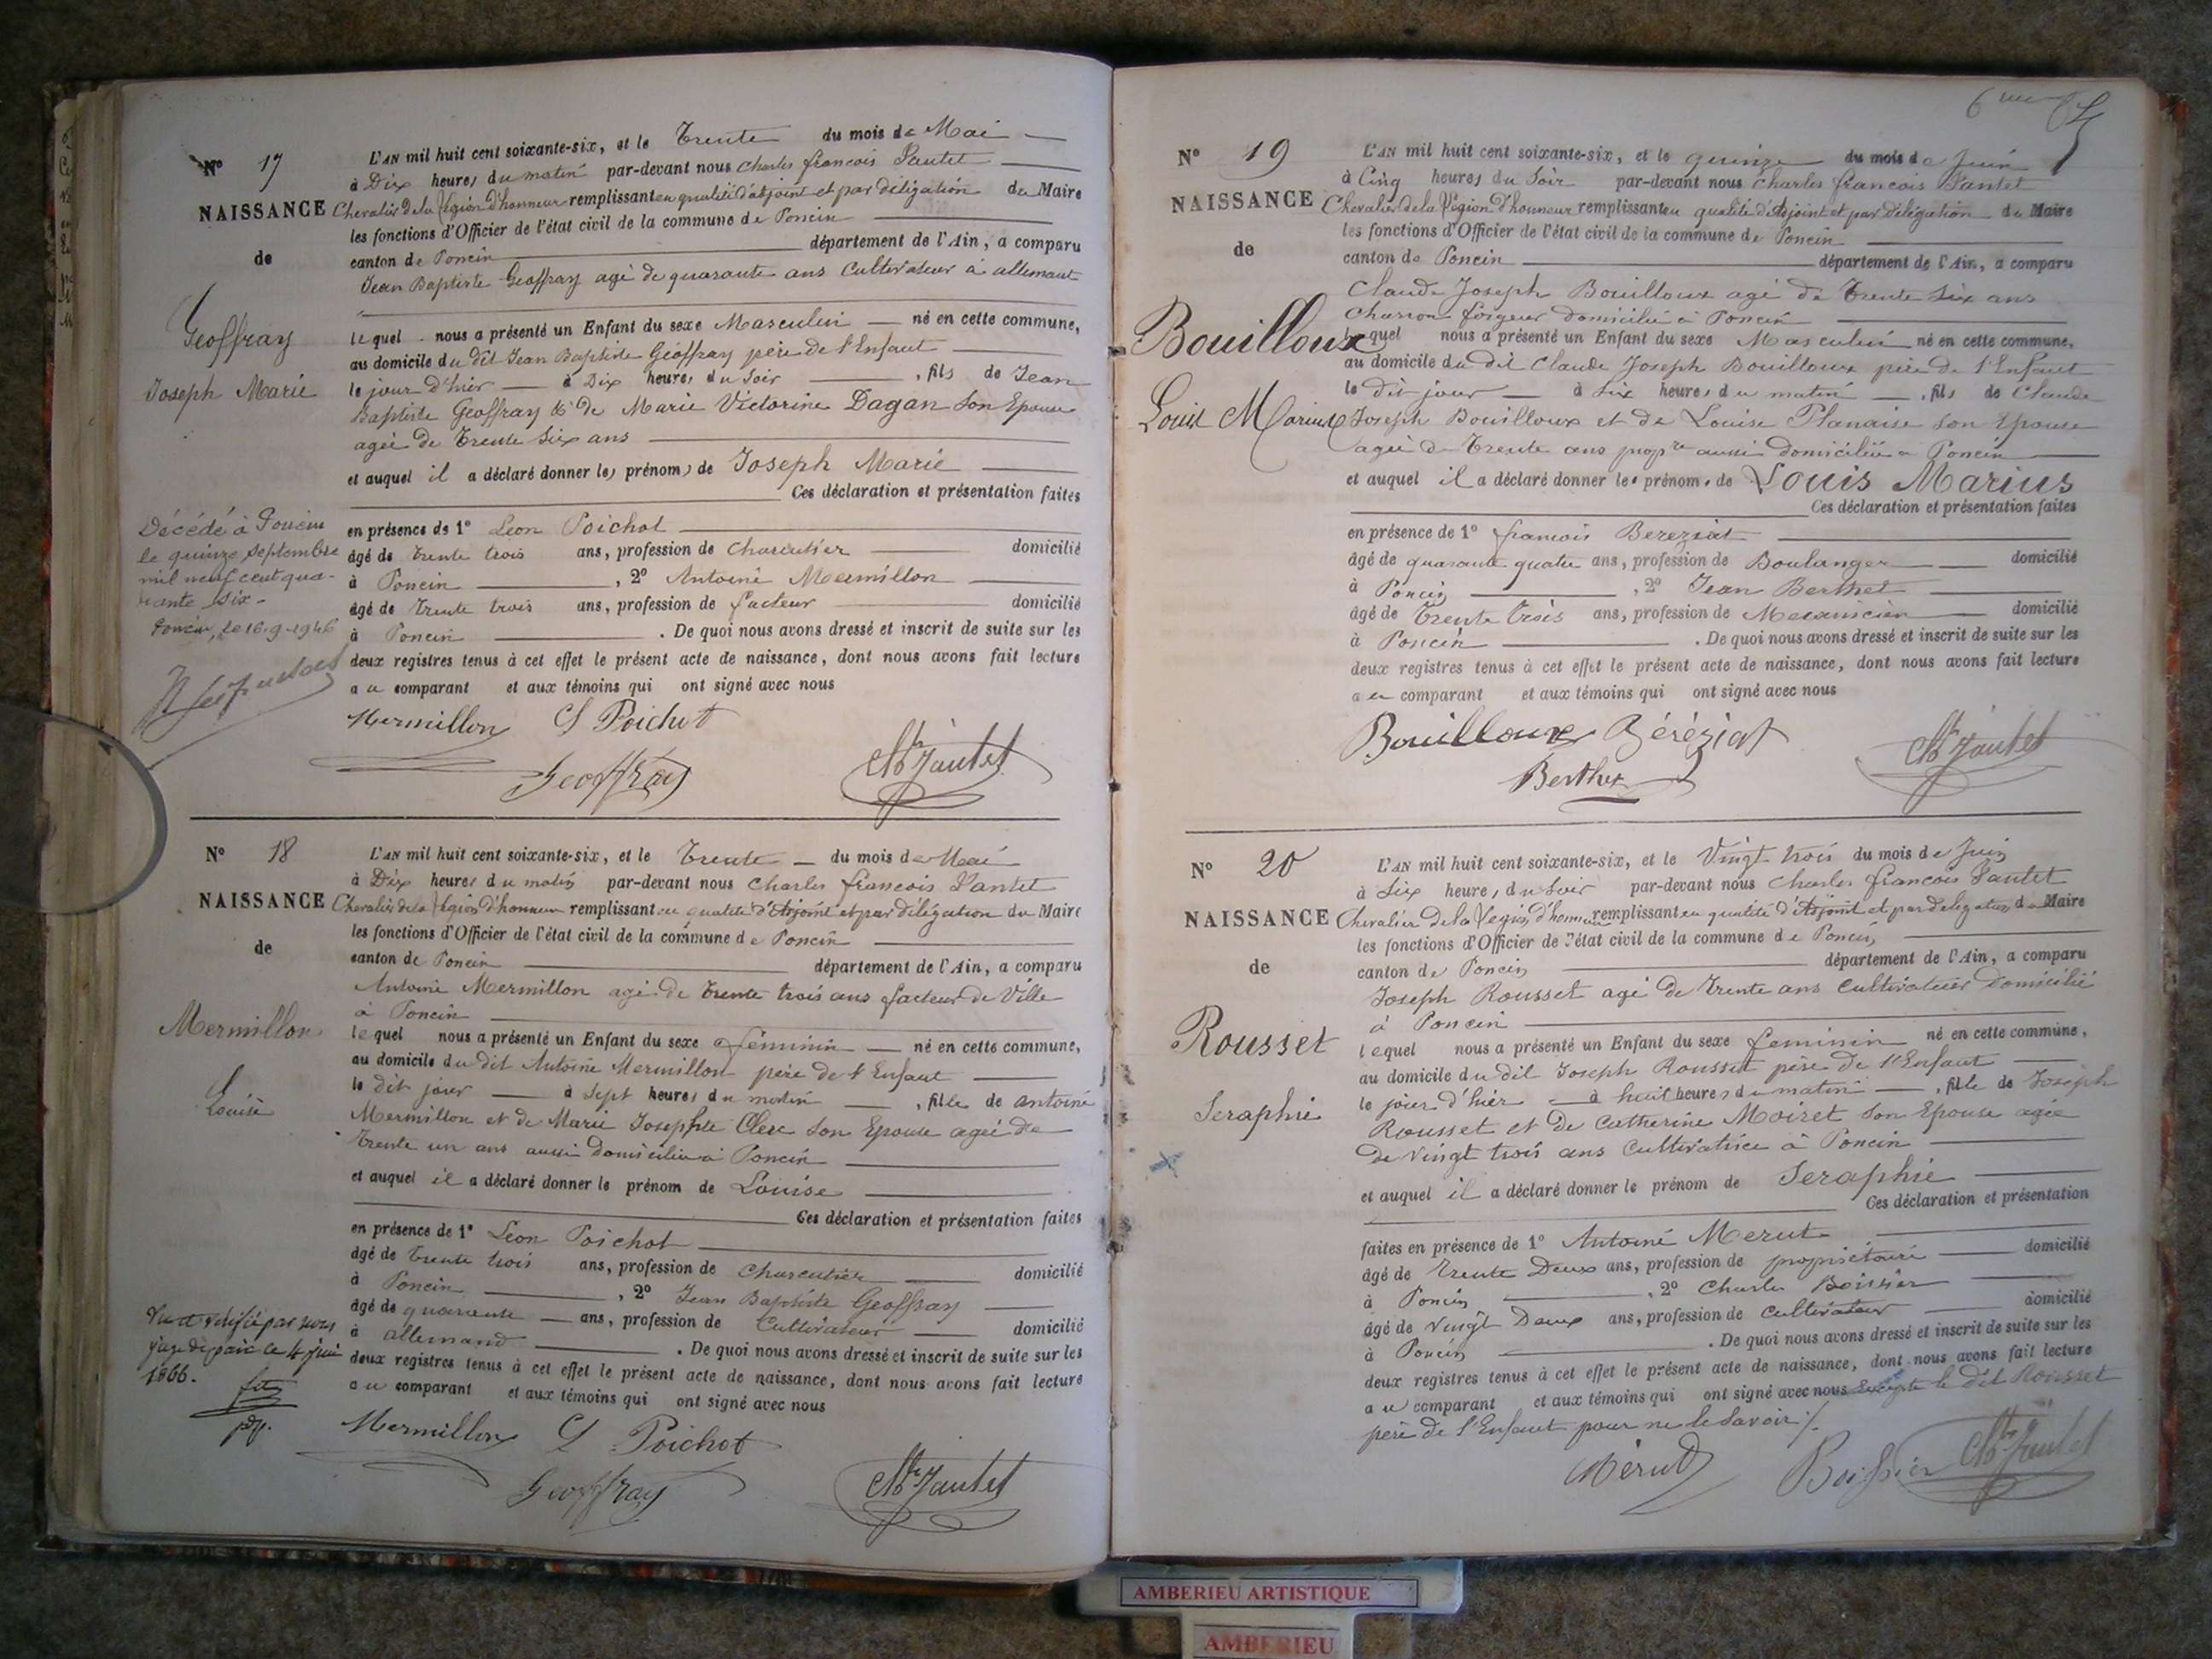 N° 17
L'AN mil huit cent soixante-six, et le Trente du mois de Mai
à Dix heures du matin par-devant nous Charles francois Pantet
NAISSANCE Chevalier de la Légion d'honneur remplissant en qualité d'adjoint et par déligation du Maire
les fonctions d'Officier de l'état civil de la commune de Poncin
de
canton de Poncin département de l'Ain, a comparu
Jean Baptiste Geoffray agé de quarante ans Cultivateur à allemant
Geoffray
lequel nous a présenté un Enfant du sexe Masculin né en cette commune,
au domicile du dit Jean Baptiste Geoffray père de l'Enfant
Joseph Marie
le jour d'hier à Dix heures du Soir , fils de Jean
Baptiste Geoffray & de Marie Victorine Dagan Son Epouse
agée de Trente Six ans
et auquel il a déclaré donner les prénoms de Joseph Marie
Ces déclaration et présentation faites
Décédé à Poncin
le quinze Septembre
mil neuf cent qua-
rante six.
Poncin, le 16-9-1946
en présence de 1° Leon Poichot
âgé de trente trois ans, profession de Charcutier domicilié
à Poncin , 2° Antoine Mermillon
âgé de Trente trois ans, profession de facteur domicilié
à Poncin . De quoi nous avons dressé et inscrit de suite sur les
deux registres tenus à cet effet le présent acte de naissance, dont nous avons fait lecture
au comparant et aux témoins qui ont signé avec nous
Mermillon L Poichot
Geoffray
N° 18
L'AN mil huit cent soixante-six, et le Trente du mois de Mai
à Dix heures du matin par-devant nous Charles francois Pantet
NAISSANCE Chevalier de la Légion d'honneur remplissant en qualité d'Adjoint et par déligation du Maire
les fonctions d'Officier de l'état civil de la commune de Poncin
de
canton de Poncin département de l'Ain, a comparu
Antoine Mermillon agé de trente trois ans facteur de Ville
à Poncin
Mermillon
lequel nous a présenté un Enfant du sexe féminin né en cette commune,
au domicile du dit Antoine Mermillon père de l'Enfant
Louise
le dit jour à Sept heures du matin , fille de antoine
Mermillon et de Marie Josephte Clerc Son Epouse agée de
Trente un ans aussi domiciliée à Poncin
et auquel il a déclaré donner le prénom de Louise
Ces déclaration et présentation faites
en présence de 1° Léon Poichot
âgé de trente trois ans, profession de Charcutier domicilié
à Poncin , 2° Jean Baptiste Geoffray
âgé de quarante ans, profession de Cultivateur domicilié
à allemand . De quoi nous avons dressé et inscrit de suite sur les
deux registres tenus à cet effet le présent acte de naissance, dont nous avons fait lecture
au comparant et aux témoins qui ont signé avec nous
Vu et vérifié par nous
juge de paix le 4 juin
1866.
Mermillon L Poichot
Geoffray
6me
N° 19
L'AN mil huit cent soixante-six, et le quinze du mois de Juin
à Cinq heures du Soir par-devant nous Charles francois Pantet
NAISSANCE Chevalier de la Légion d'honneur remplissant en qualité d'Adjoint et par déligation du Maire
les fonctions d'Officier de l'état civil de la commune de Poncin
de
canton de Poncin département de l'Ain, a comparu
Claude Joseph Bouilloux agé de Trente Six ans
Charron forgeur domicilié à Poncin
Bouilloux
lequel nous a présenté un Enfant du sexe Masculin né en cette commune,
au domicile du dit Claude Joseph Bouilloux père de l'Enfant
le dit jour à Six heures du matin , fils de Claude
Louis Marius
Joseph Bouilloux et de Louise Planaise Son Epouse
agée de Trente ans propre aussi domiciliée à Poncin
et auquel il a déclaré donner les prénoms de Louis Marius
Ces déclaration et présentation faites
en présence de 1° francois Bereziat
âgé de quarante quatre ans, profession de Boulanger domicilié
à Poncin , 2° Jean Berthet
âgé de Trente trois ans, profession de Mecanicien domicilié
à Poncin . De quoi nous avons dressé et inscrit de suite sur les
deux registres tenus à cet effet le présent acte de naissance, dont nous avons fait lecture
au comparant et aux témoins qui ont signé avec nous
Bouilloux Béréziat
Berthet
N° 20
L'AN mil huit cent soixante-six, et le Vingt trois du mois de Juin
à Six heures du Soir par-devant nous Charles francois Pantet
NAISSANCE Chevalier de la Légion d'honneur remplissant en qualité d'Adjoint et par délégation du Maire
les fonctions d'Officier de l'état civil de la commune de Poncin
de
canton de Poncin département de l'Ain, a comparu
Joseph Rousset agé de Trente ans Cultivateur domicilié
à Poncin
Rousset
lequel nous a présenté un Enfant du sexe feminin né en cette commune,
au domicile du dit Joseph Rousset père de l'Enfant
Seraphie
le jour d'hier à huit heures du matin , fille de Joseph
Rousset et de Catherine Moiret Son Epouse agée
de vingt trois ans Cultivatrice à Poncin
et auquel il a déclaré donner le prénom de Seraphie
Ces déclaration et présentation
faites en présence de 1° Antoine Merut
âgé de Trente Deux ans, profession de propriétaire domicilié
à Poncin , 2° Charles Boissier
âgé de Vingt Deux ans, profession de Cultivateur domicilié
à Poncin . De quoi nous avons dressé et inscrit de suite sur les
deux registres tenus à cet effet le présent acte de naissance, dont nous avons fait lecture
au comparant et aux témoins qui ont signé avec nous Excepté le dit Rousset
père de l'Enfant pour ne le Savoir ./.
Mérut Boissier
AMBERIEU ARTISTIQUE
AMBERIEU